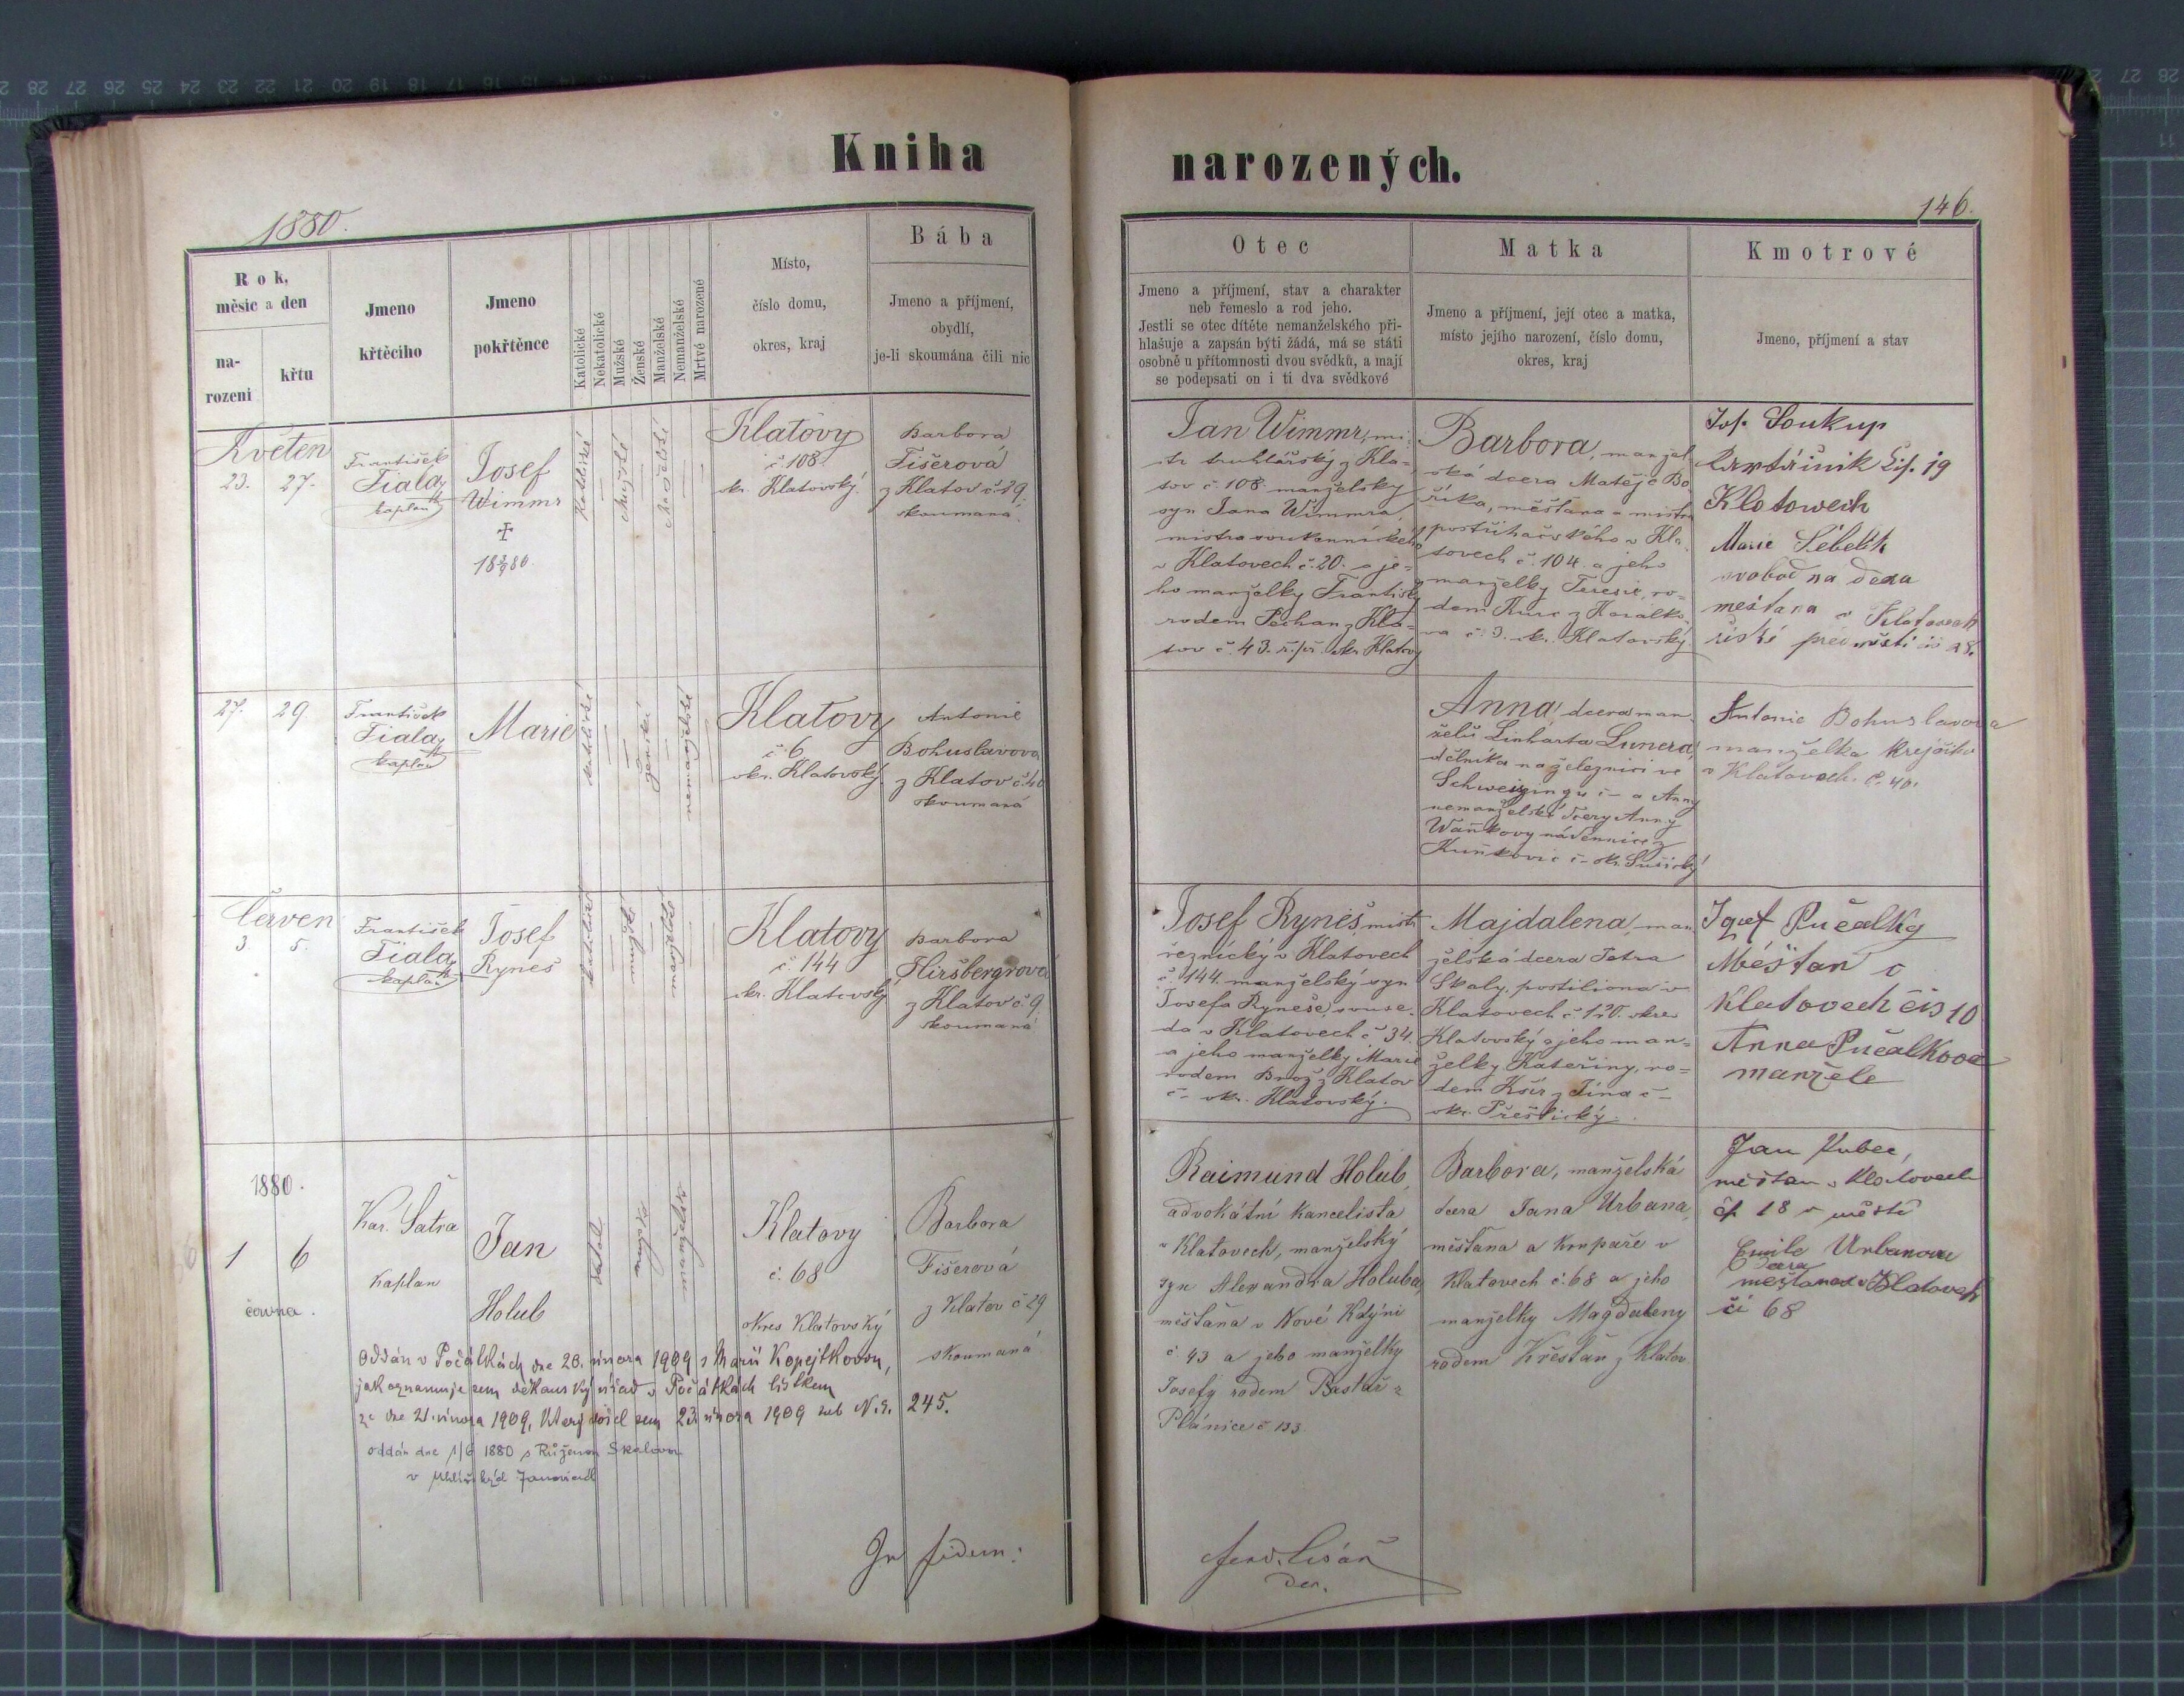 Kniha narozených.
1880.
146.
Rok,
měsíc a den
na-
rozeni
křtu
Jmeno
křtěcího
Jmeno
pokřtěnce
Katolické
Nekatolické
Mužské
Ženské
Manželské
Nemanželské
Mrtvé narozené
Místo,
číslo domu,
okres, kraj
Bába
Jmeno a příjmení,
obydlí,
je-li skoumána čili nic
Otec
Jmeno a příjmení, stav a charakter
neb řemeslo a rod jeho.
Jestli se otec dítěte nemanželského při-
hlašuje a zapsán býti žádá, má se státi
osobně u přítomnosti dvou svědků, a mají
se podepsati on i ti dva svědkové
Matka
Jmeno a příjmení, její otec a matka,
místo jejího narození, číslo domu,
okres, kraj
Kmotrové
Jmeno, příjmení a stav
Květen
23. 27.
František
Fiala
kaplan
Josef
Wimmr
18 3/9 80.
katolické
mužské
manželské
Klatovy
č. 108
okr. Klatovský.
Barbora
Fišerová
z Klatov č. 29.
skoumaná.
Jan Wimmr, mi-
str truhlářský z Kla-
tov č. 108 manželský
syn Jana Wimmra,
mistra soukennického
v Klatovech č. 20. a je-
ho manželky Františky
rodem Pechan z Kla-
tov č. 43. ř. př. okr. Klatovy
Barbora, manžel
ská dcera Matěje Bo
říka, měšťana a mistra
postřihačského v Kla-
tovech č. 104. a jeho
manželky Teresie, ro-
dem Kurc z
č. 3. okr. Klatovský
Jos. Soukup
kartáčnik čis. 19
Klatowech
Marie
svobodna dcera
mešťana v Klatovech
předměstí
27. 29
František
Fiala
kaplan
Marie
katolické
ženské
nemanželské
Klatovy
č. 6
okr. Klatovský
Antonie
Bohuslavova
z Klatov č. 40
skoumaná
Anna, dcera man-
želů Linharta Lunera
dělníka na železnici ve
č - a Anny
nemanželské dcery Anny
Waňkovy nádennice z
Kuňkovic č - okr. Sušický
Antonie Bohuslavova
manželka krejčího
v Klatovech. č. 40.
Červen
3. 5.
František
Fiala
kaplan
Josef
Ryneš
katolické
mužské
manželské
Klatovy
č. 144
okr. Klatovský
Barbora
Hiršbergrová
z Klatov č 9.
skoumaná
Josef Ryneš, mistr
řeznický v Klatovech
č. 144. manželský syn
Josefa Ryneše, souse-
da v Klatovech č 34.
a jeho manželky Marie
rodem Brož z Klatov
č - okr. Klatovský.
Majdalena, man
želská dcera Petra
Skaly, postiliona v
Klatovech č 120. okres
Klatovský a jeho man-
želky Kateřiny, ro-
dem Kšír z Týna č -
okr. Přeštický.
Josef Pučalky
Měšťan v
Klatovech čis 10
Anna Pučalkova
manžele
1880.
1 6
června.
Kar. Šatra
Kaplan
Jan
Holub
katol.
mužské
manželské
Klatovy
č. 68
okres Klatovský
Barbora
Fišerová
z Klatov č 29
skoumaná.
Raimund Holub,
advokátní kancelista
v Klatovech, manželský
syn Alexandra Holuba,
měšťana v Nové Kdýni
č 43 a jeho manželky
Josefy rodem Bastař z
Plánice č 133
Barbora, manželská
dcera Jana Urbana,
měšťana a krupaře v
Klatovech č. 68 a jeho
manželky Magdaleny
rodem Křesťan z Klatov
Jan Kubec,
měšťan v Klatovech
čp 18 v městě
Emile Urbanova
dcera
mešťana v Klatovech
či 68
Oddán v Počátkách dne 20. února 1909 s Marií Kopejtkovou,
jak oznamuje sem děkanský úřad v Počátkách lístkem
ze dne 21. února 1909, který došel sem 23. února 1909 sub N. E. 245.
oddán dne 1/6 1880 s Růženou Skalovou
v Uhlířských Janovicích
In fidem:
Ferd. Čisař